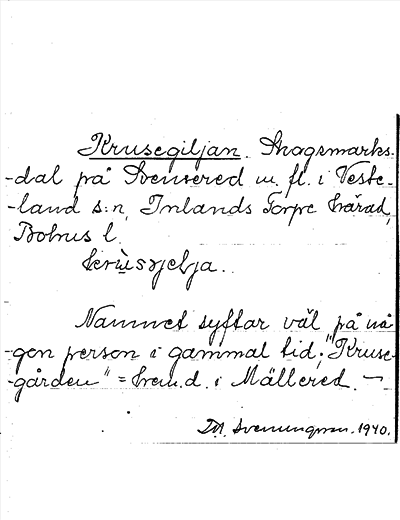 Krusegiljan. Skogsmarks-
-dal på Svensered m. fl. i Veste-
-land s:n, Inlands Torpe härad,
Bohus l.
Namnet syftar väl på nå-
-gon person i gammal tid; "Kruse-
-gården" = hem.d. i Mällered. —
Svenungsson. 1940.